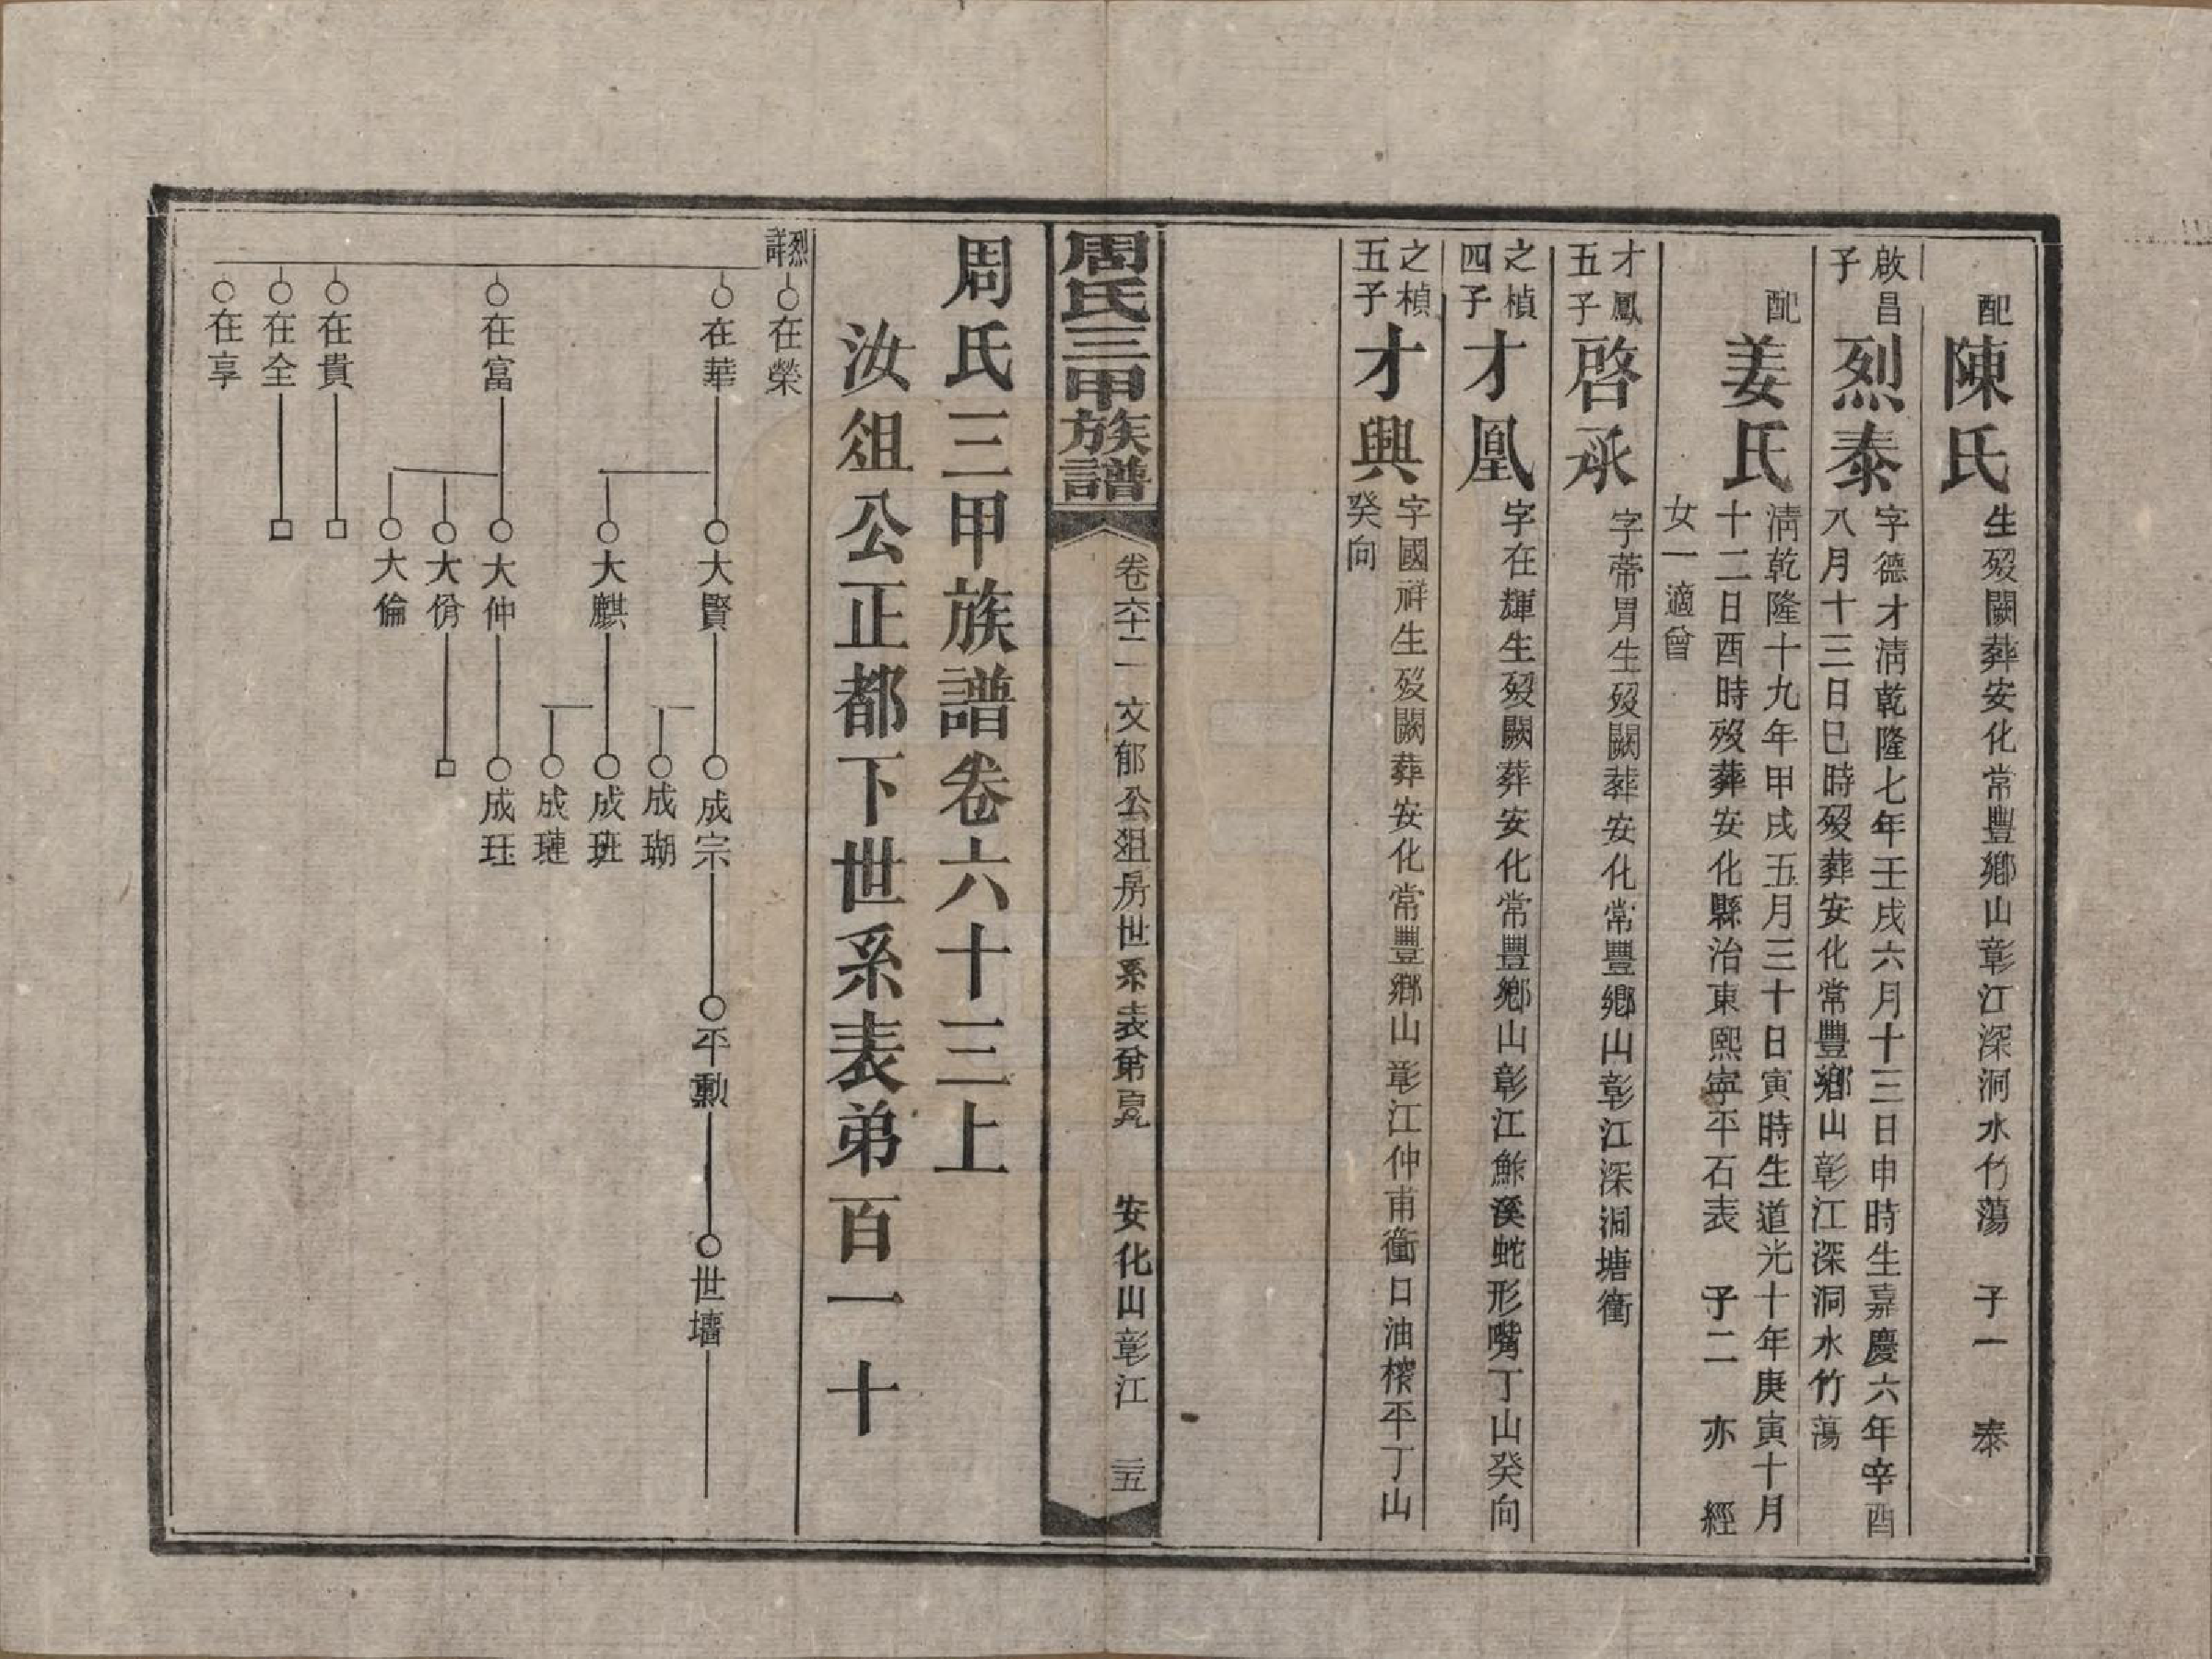 配陳氏生歿闕葬安化常豐鄉山彰江深洞水竹蕩 子一 泰
啟昌子烈泰字德才清乾隆七年壬戌六月十三日申時生嘉慶六年辛酉
八月十三日巳時歿葬安化常豐鄉山彰江深洞水竹蕩
配姜氏清乾隆十九年甲戌五月三十日寅時生道光十年庚寅十月
十二日酉時歿葬安化縣治東熙寧平石表 子二 亦 經
女一適曾
才鳳五子啓承字蒂胃生歿闕葬安化常豐鄉山彰江深洞塘衝
之楨四子才凰字在輝生歿闕葬安化常豐鄉山彰江鮓溪蛇形嘴丁山癸向
之楨五子才興字國祥生歿闕葬安化常豐鄉山彰江仲甫衝口油榨平丁山
癸向
周氏三甲族譜 卷六十二 文郁公徂房世系表第百九 安化山彰江 三五
周氏三甲族譜卷六十三上
汝徂公正都下世系表弟百一十
烈詳 在榮
在華 大賢 成宗 平勳 世墻
成瑚
大麒 成班
成璉
在富 大仲 成玨
大份
大倫
在貴
在全
在享